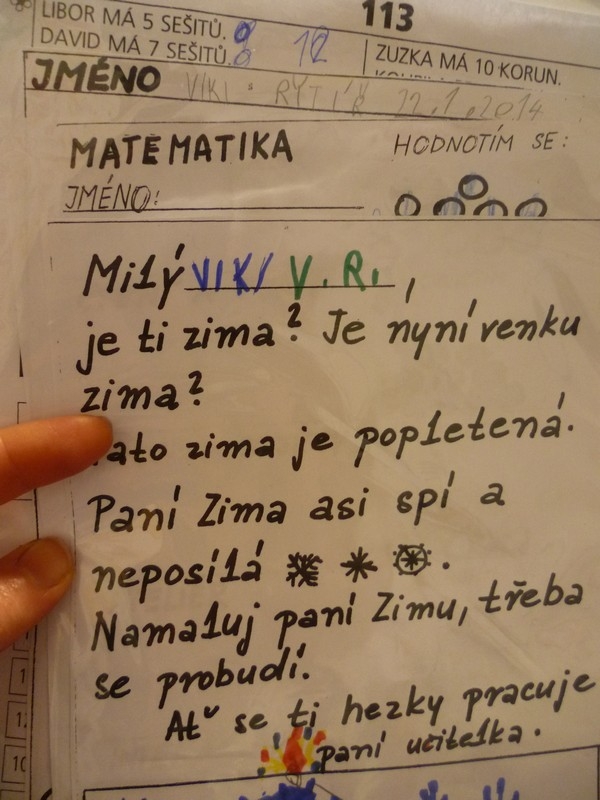 113
LIBOR MÁ 5 SEŠITŮ.
DAVID MÁ 7 SEŠITŮ.
8 12
ZUZKA MÁ 10 KORUN.
JMÉNO VIKI RYTÍŘ 22.1.2014
MATEMATIKA
HODNOTÍM SE:
JMÉNO:
Milý VIKI V.R.,
je ti zima? Je nyní venku
zima?
zima je popletená.
Paní Zima asi spí a
neposílá .
Namaluj paní Zimu, třeba
se probudí.
Ať se ti hezky pracuje
paní učitelka.